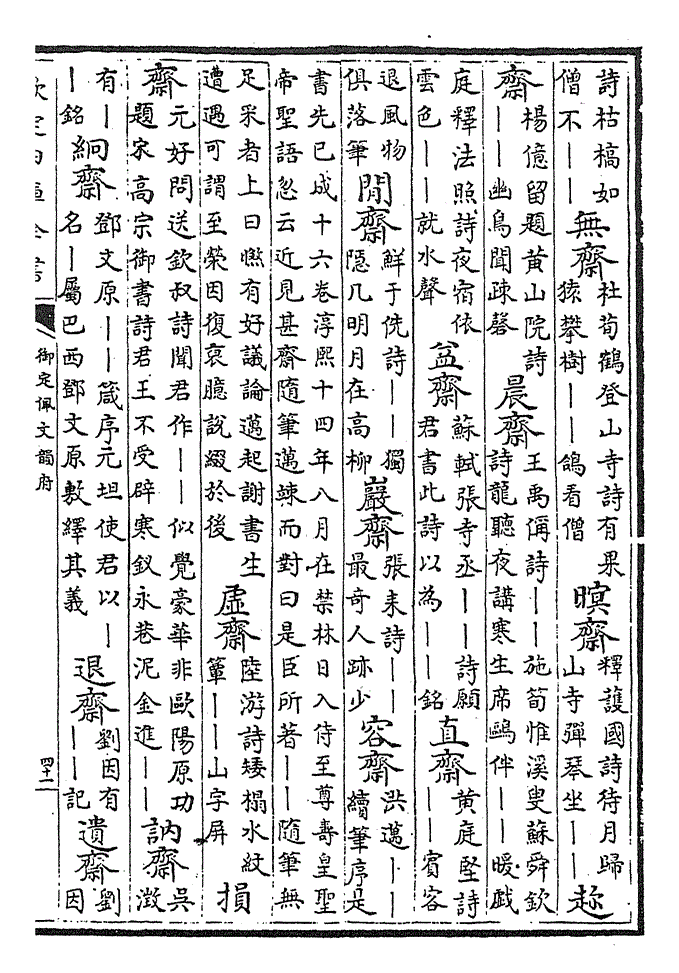 詩枯槁如僧不｜｜無齋杜荀鶴登山寺詩有果猿攀樹｜｜鴿看僧暝齋釋護國詩待月歸山寺彈琴坐｜｜趁
齋楊億留題黃山院詩｜｜幽鳥聞疎磬晨齋王禹偁詩｜｜施筍惟溪叟蘇舜欽詩龍聽夜講寒生席鷗伴｜｜暖戲
庭釋法照詩夜宿依雲色｜｜就水聲盆齋蘇軾張寺丞｜｜詩願君書此詩以為｜｜銘直齋黃庭堅詩｜｜賓客
退風物俱落筆閒齋鮮于侁詩｜｜獨隱几明月在高柳巖齋張耒詩｜｜最奇人跡少容齋洪邁｜｜續筆序是
書先已成十六卷淳熙十四年八月在禁林日入侍至尊壽皇聖帝聖語忽云近見甚齋隨筆邁竦而對曰是臣所著｜｜隨筆無
足采者上曰有好議論邁起謝書生遭遇可謂至榮因復裒臆說綴於後虛齋陸游詩矮榻水紋簟｜｜山字屏損
齋元好問送欽叔詩聞君作｜｜似覺豪華非歐陽原功題宋高宗御書詩君王不受辟寒釵永巷泥金進｜｜訥齋吳澂
有｜｜銘絅齋鄧文原｜｜箴序元坦使君以｜名｜屬巴西鄧文原敷繹其義退齋劉因有｜｜記遺齋劉因
欽定四庫全書
御定佩文韻府
四十二